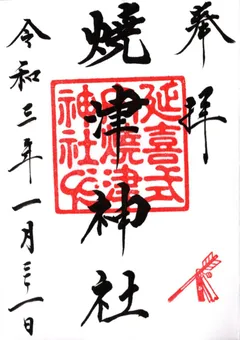 奉拝
燒津神社
令和三年一月三一日
延喜式
内焼津
神社